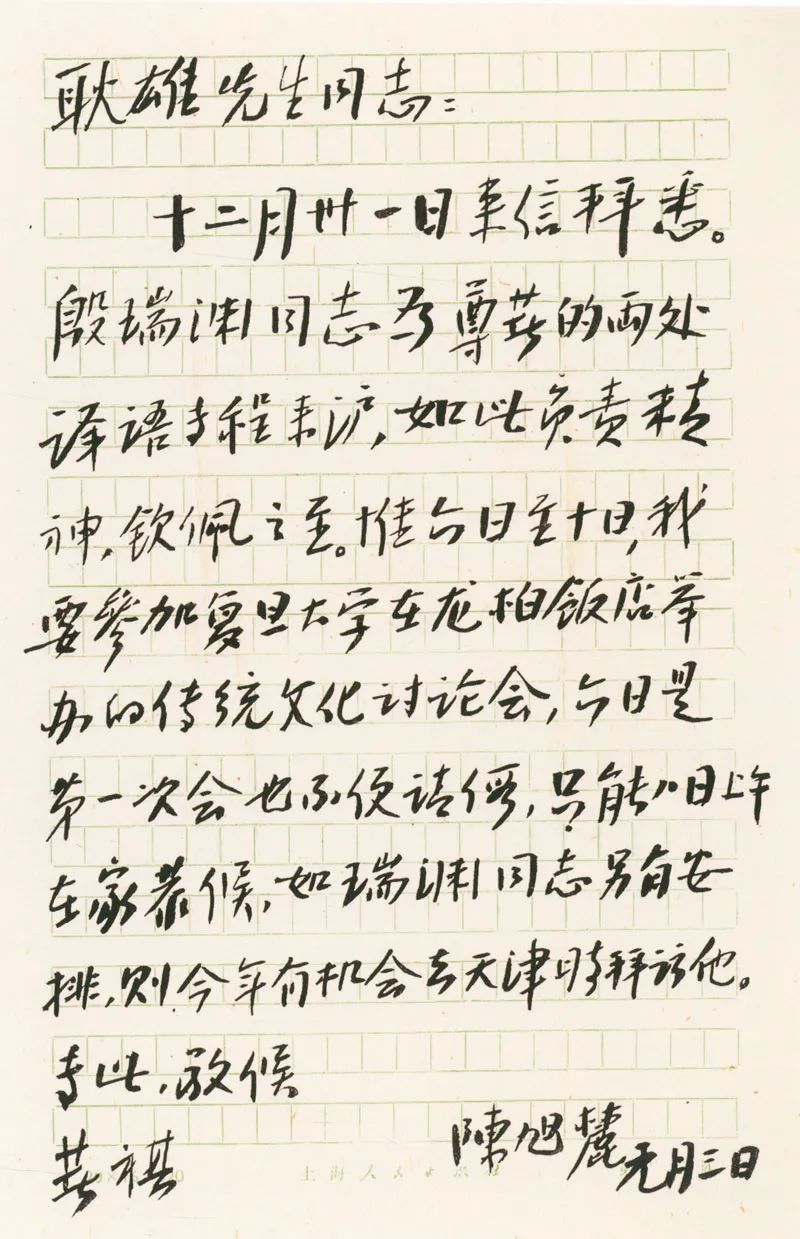 耿雄先生同志：
十二月卅一日来信拜悉。
殷瑞渊同志为尊著的两处
译语专程来沪，如此负责精
神，钦佩之至。惟六日至十日，我
要参加复旦大学在龙柏饭店举
办的传统文化讨论会，六日是
第一次会也不便请假，只能八日上午
在家恭候，如瑞渊同志另有安
排，则今年有机会去天津时拜访他。
专此，敬候
著祺
陳旭麓
元月三日
上海人民出版社